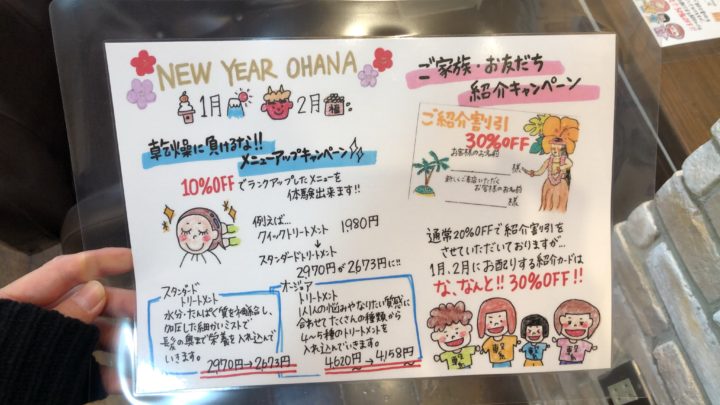 NEW YEAR OHANA
1月 2月 福
乾燥に負けるな!!
メニューアップキャンペーン
10%OFFでランクアップしたメニューを
体験出来ます!!
例えば…
クイックトリートメント 1980円
↓
スタンダードトリートメント
2970円が2673円に!!
スタンダード
トリートメント
水分・たんぱく質を補給し、
加圧した細かいミストで
長髪の奥まで栄養を入れ込んで
いきます。
2970円→2673円
オージュア
トリートメント
1人1人の悩みやなりたい質感に
合わせてたくさんの種類から
4〜5種のトリートメントを
入れ込んでいきます。
4620円→4158円
ご家族・お友だち
紹介キャンペーン
ご紹介割引
30%OFF
お客様のお名前
様
新しくご来店いただく
お客様のお名前
様
通常20%OFFで紹介割引を
させていただいておりますが…
1月、2月にお配りする紹介カードは
な、なんと!! 30%OFF!!